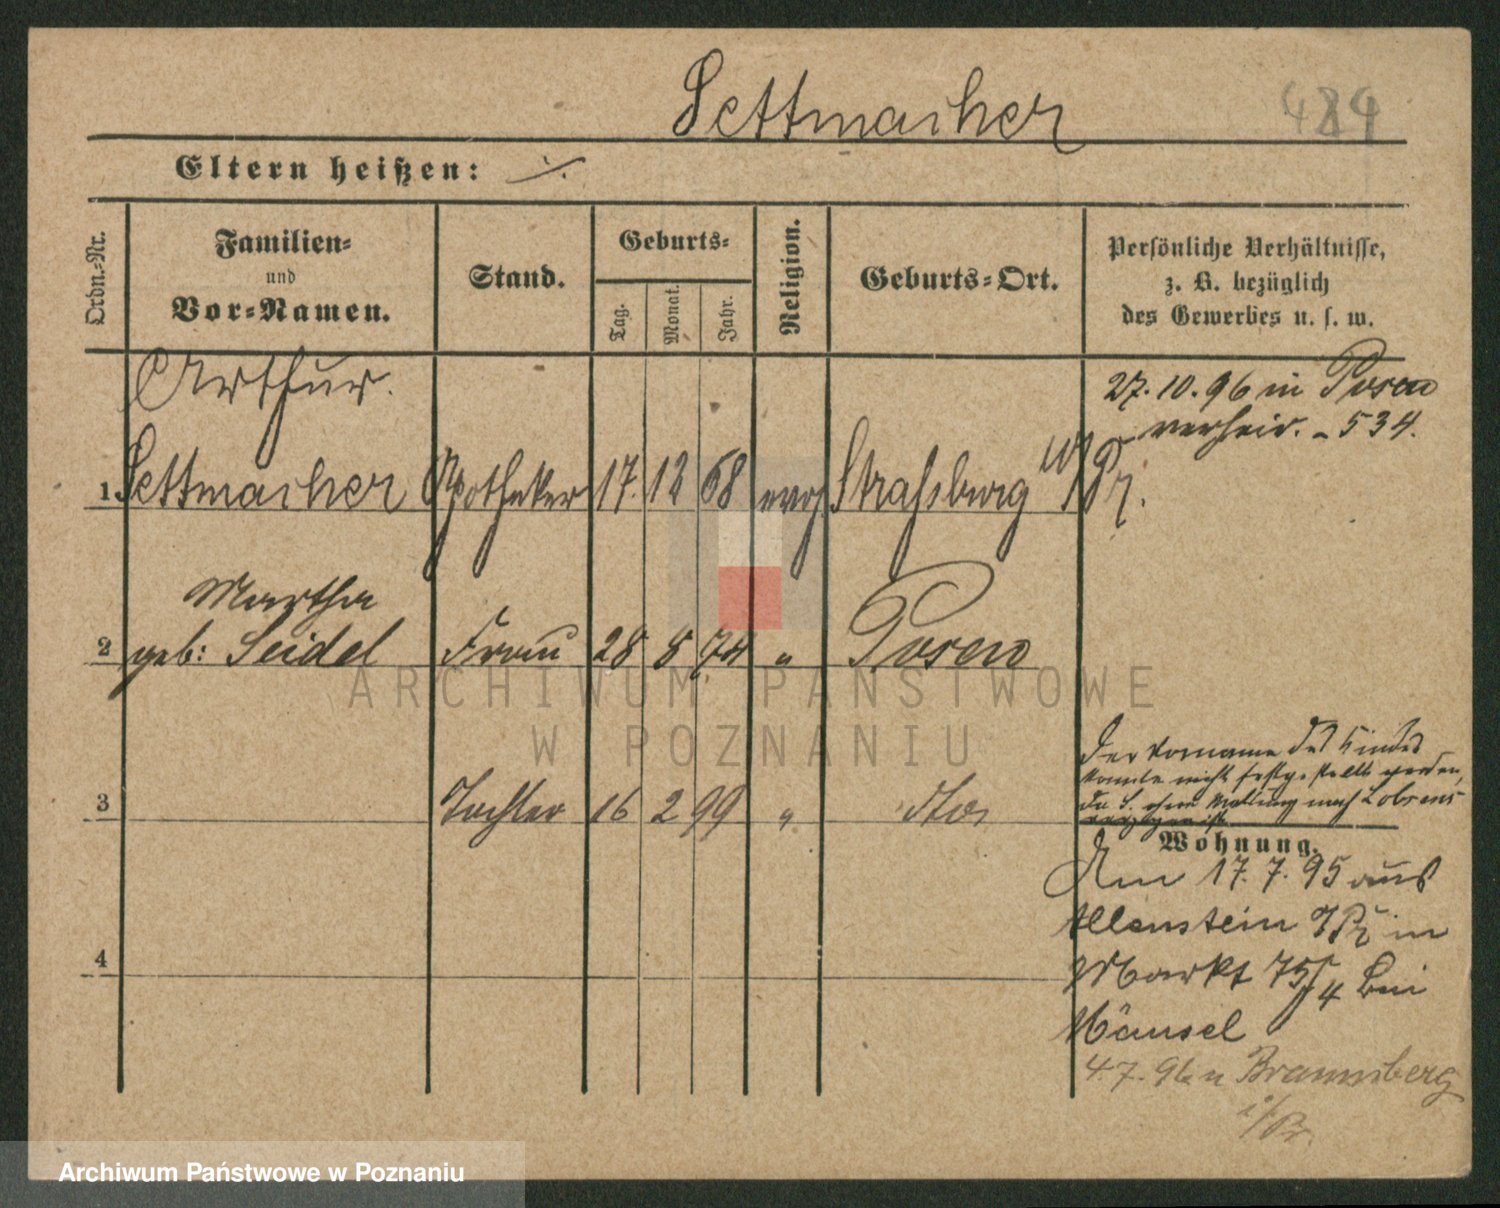 Settmacher
484
Eltern heißen: ./.
Ordn.-Nr.
Familien-
und
Vor-Namen.
Stand.
Geburts-
Tag.
Monat.
Jahr.
Religion.
Geburts-Ort.
Persönliche Verhältnisse,
z. B. bezüglich
des Gewerbes u. s. w.
27. 10. 96 in Posen
verheir. - 534.
Arthur.
1 Settmacher Apotheker 17. 12 68 evag Straßburg W/Pr.
Martha
2 geb: Seidel Frau 28 8 74 " Posen
3 Tochter 16 2 99 " dto
Der Vorname des Kindes
konnte nicht festgestellt werden,
da S. ohne Meldung nach Lobsens
verzogen ist
Wohnung.
Am 17. 7. 95 aus
Allenstein in
Markt 75/4 bei
Hänsel
4. 7. 96 n Braunsberg
4
ARCHIWUM PAŃSTWOWE
W POZNANIU
Archiwum Państwowe w Poznaniu